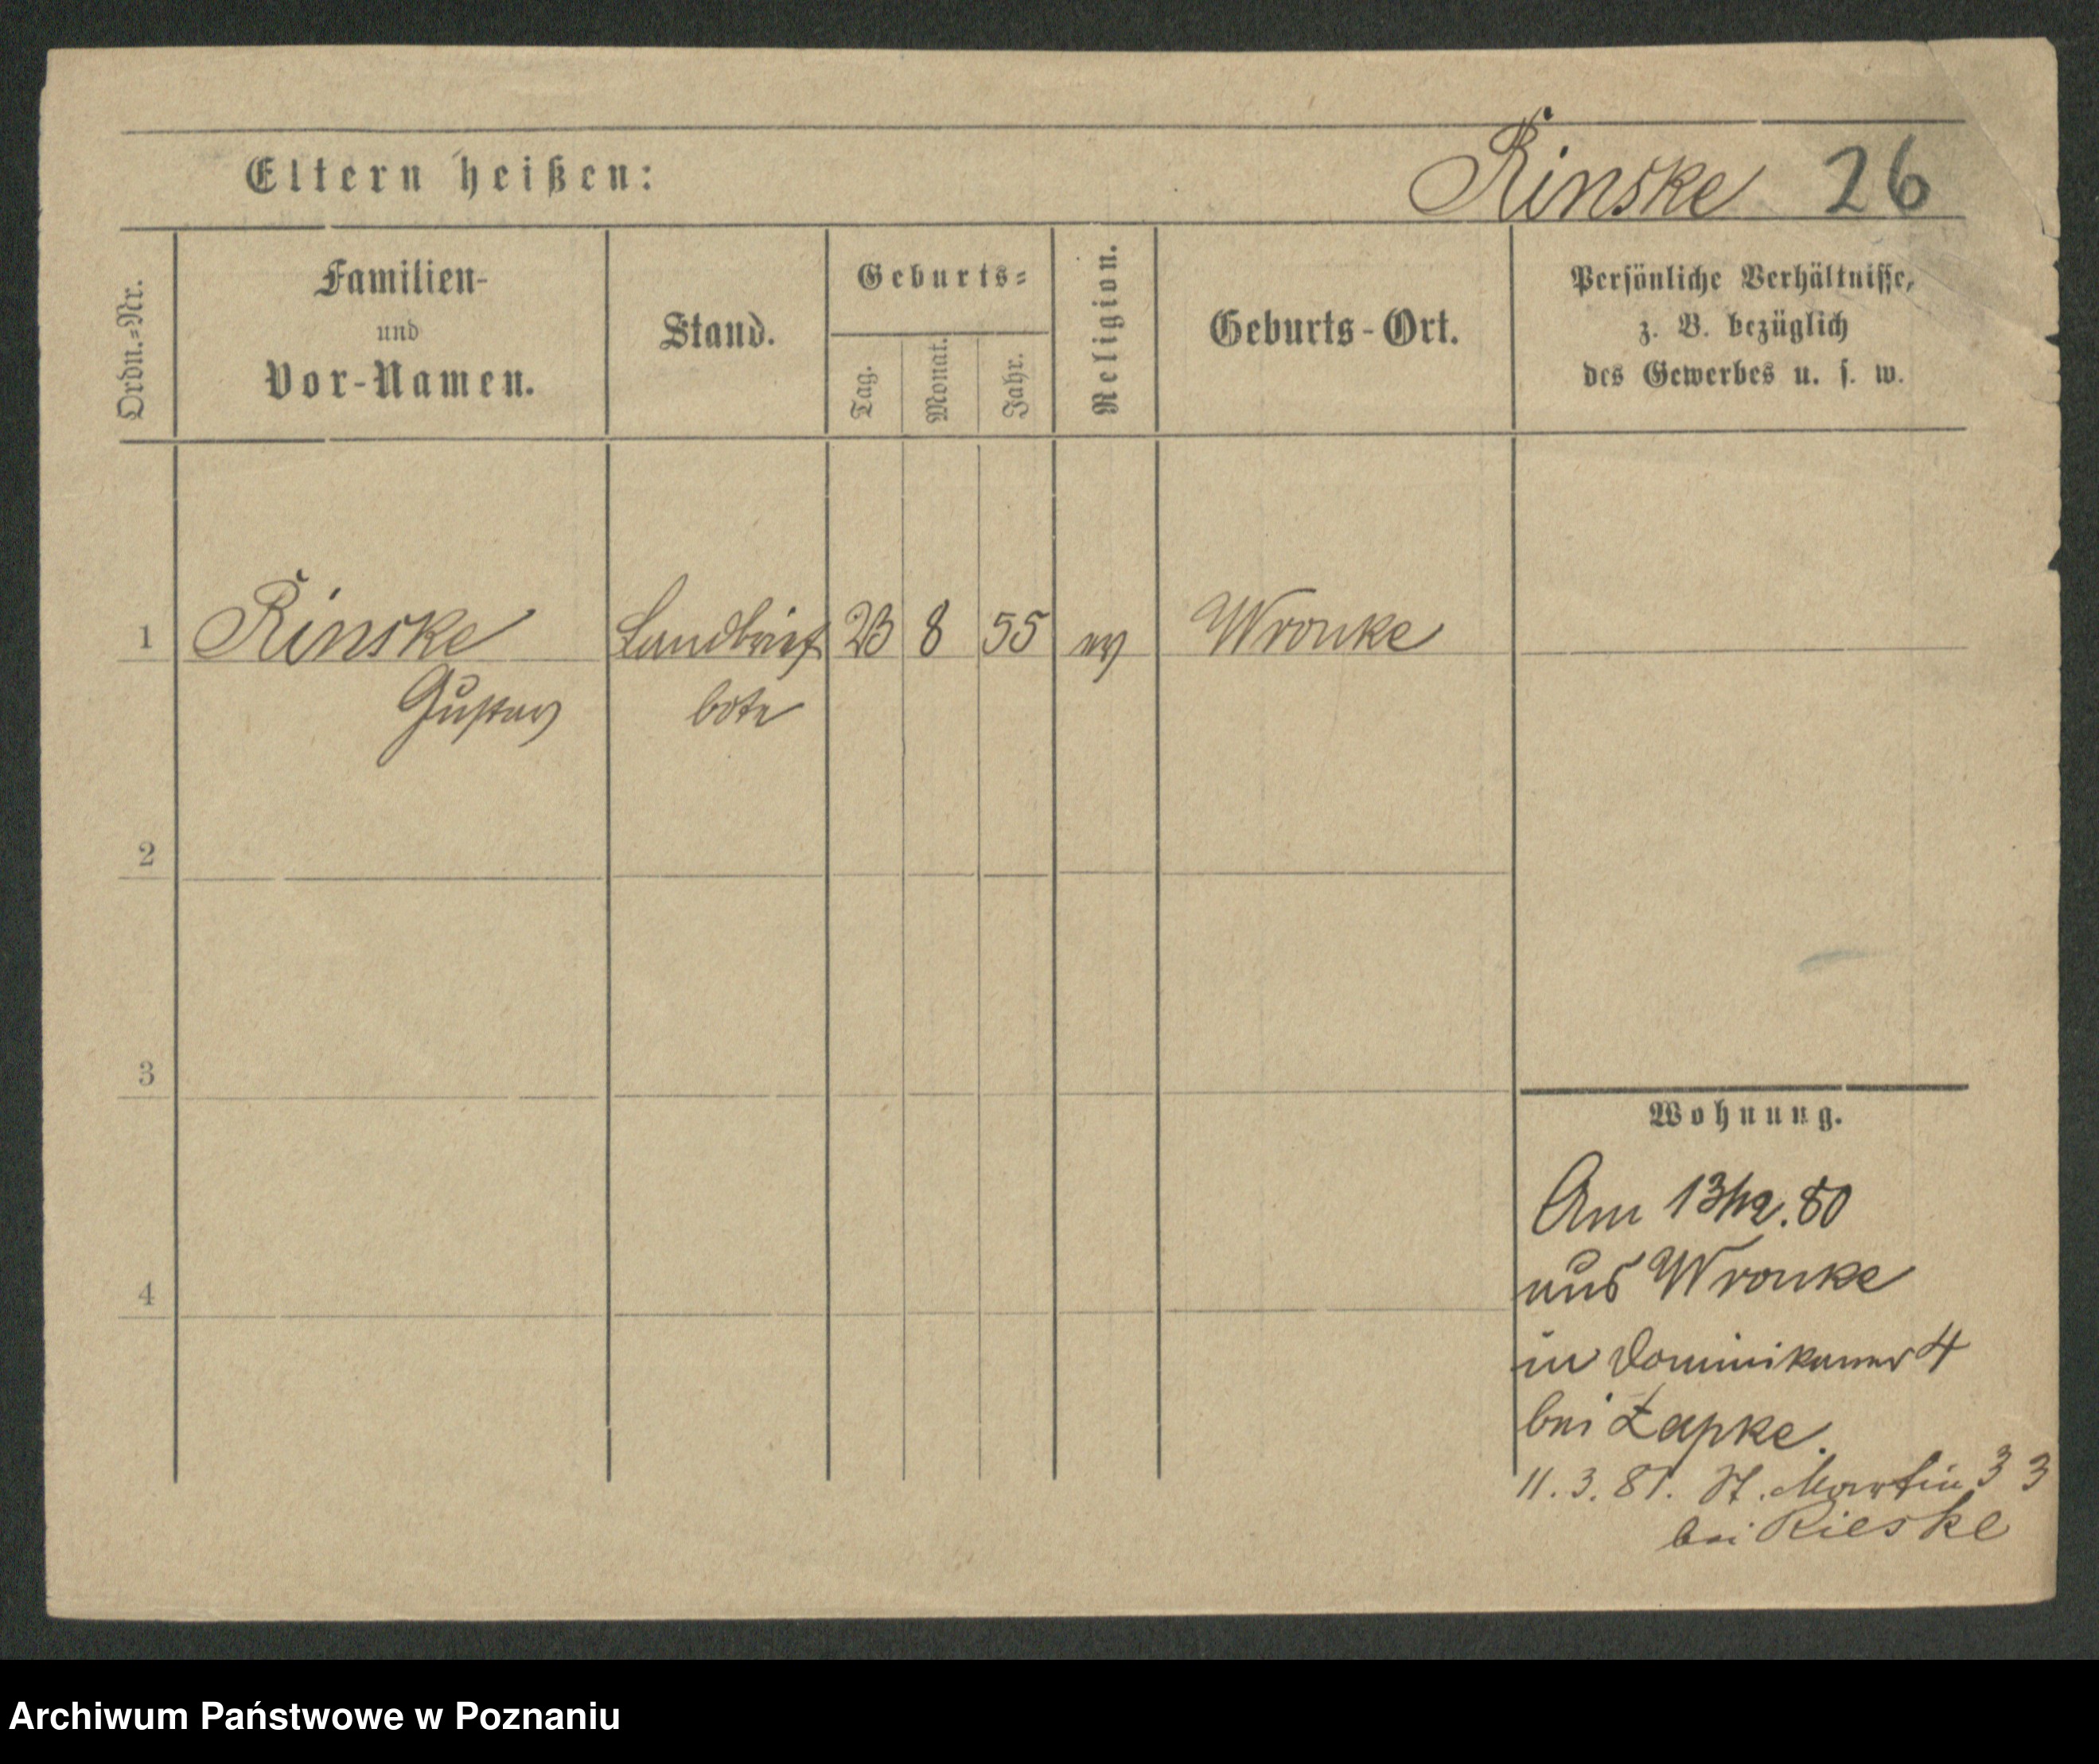 Eltern heißen: Rinske 26
Ordn.=Nr.
Familien-
und
Vor-Namen.
Stand.
Geburts=
Tag.
Monat.
Jahr.
Religion.
Geburts-Ort.
Persönliche Verhältnisse,
z. B. bezüglich
des Gewerbes u. s. w.
1 Rinske Landbrief 23 8 55 ev Wronke
Gustav bote
2
3
Wohnung.
Am 13/12.80
aus Wronke
4
in Dominikaner 4
bei Zapke.
11.3.81. St. Martin 33
bei Rieske
Archiwum Państwowe w Poznaniu